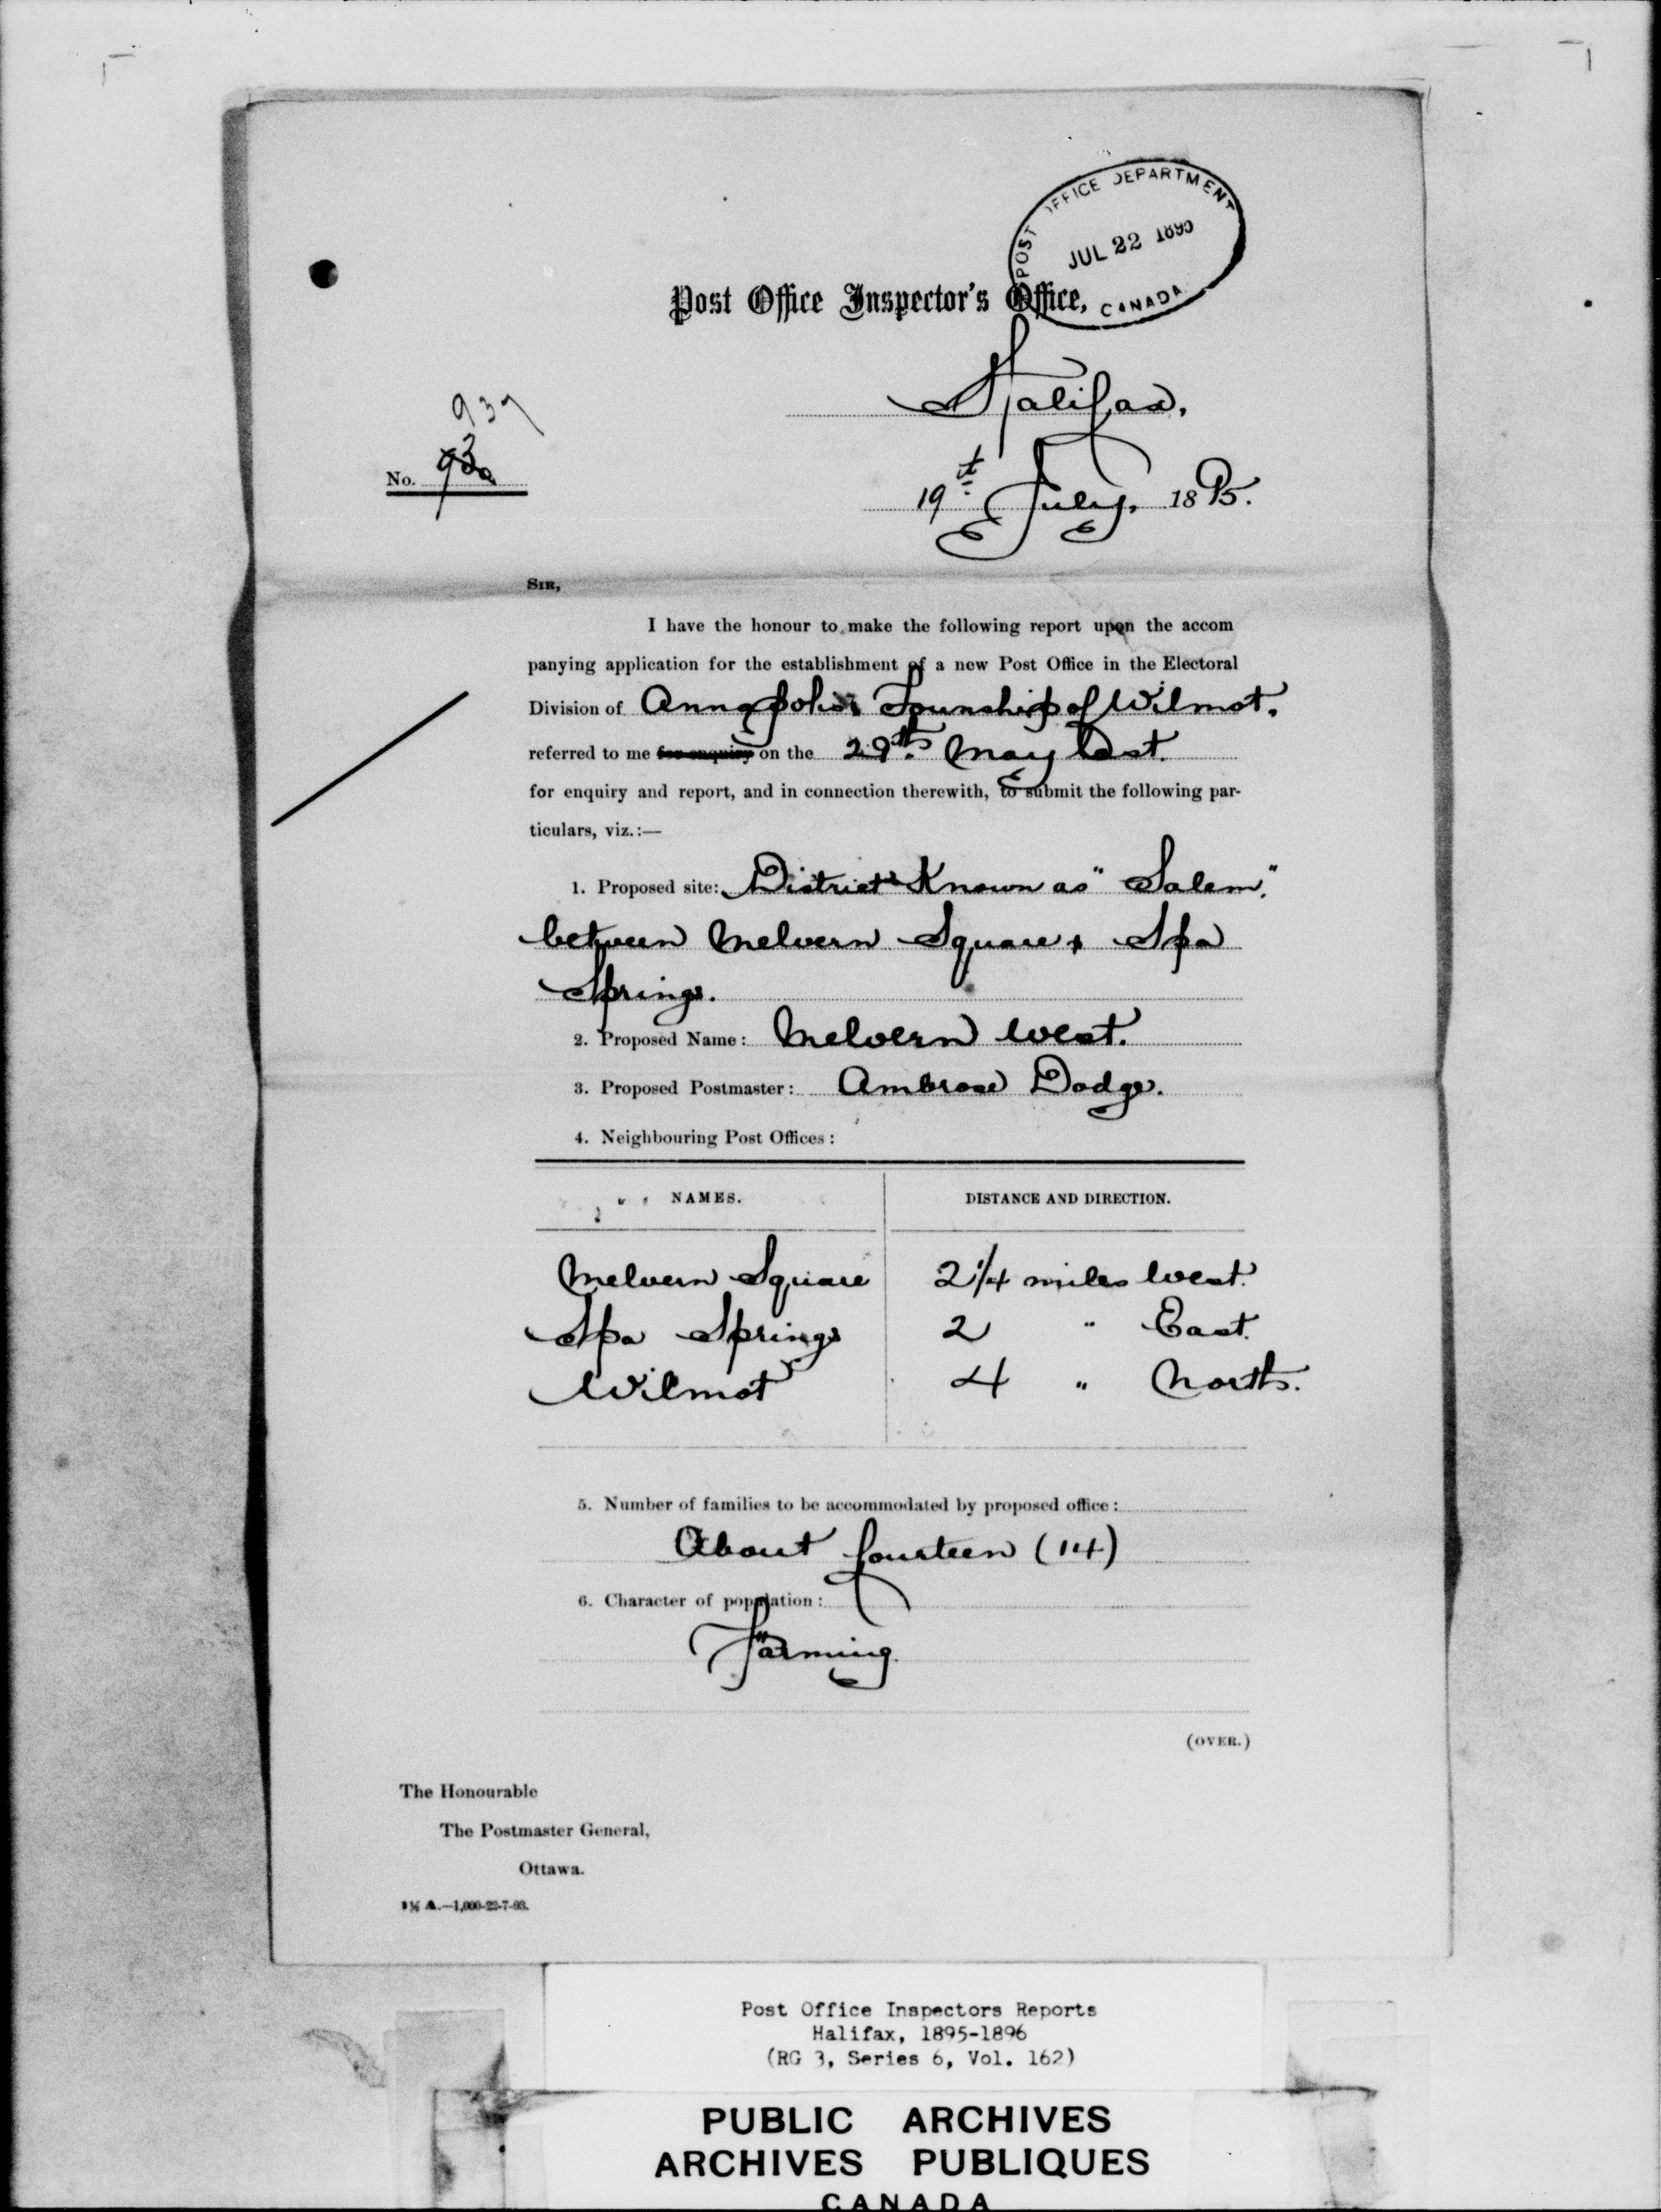 POST OFFICE DEPARTMENT
JUL 22 1895
CANADA
Post Office Inspector's Office,
Halifax,
937
No.
19th July, 1895.
SIR,
I have the honour to make the following report upon the accom
panying application for the establishment of a new Post Office in the Electoral
Division of Annapolis Township of Wilmot.
referred to me for enquiry on the 29th May last.
for enquiry and report, and in connection therewith, to submit the following par-
ticulars, viz.:—
1. Proposed site: District Known as "Salem."
between Melvern Square & Spa
Springs.
2. Proposed Name: Melvern West.
3. Proposed Postmaster: Ambrose Dodge.
4. Neighbouring Post Offices:
NAMES. DISTANCE AND DIRECTION.
Melvern Square 2 1/4 miles West.
Spa Springs 2 " East.
Wilmot 4 " North.
5. Number of families to be accommodated by proposed office:
About fourteen (14)
6. Character of population:
Farming
(OVER.)
The Honourable
The Postmaster General,
Ottawa.
A.—1,000-22-7-93.
Post Office Inspectors Reports
Halifax, 1895-1896
(RG 3, Series 6, Vol. 162)
PUBLIC ARCHIVES
ARCHIVES PUBLIQUES
CANADA